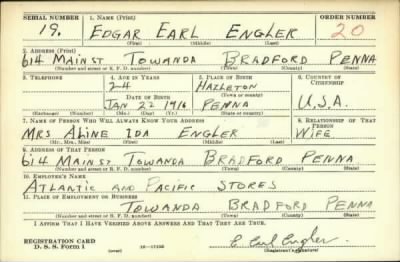 SERIAL NUMBER 1. NAME (Print) ORDER NUMBER
19. EDGAR EARL ENGLER 20
(First) (Middle) (Last)
2. ADDRESS (Print)
614 MAIN ST TOWANDA BRADFORD PENNA
(Number and street or R. F. D. number) (Town) (County) (State)
3. TELEPHONE 4. AGE IN YEARS 5. PLACE OF BIRTH 6. COUNTRY OF CITIZENSHIP
24 HAZLETON
DATE OF BIRTH (Town or county) U.S.A.
JAN 22 1916 PENNA
(Exchange) (Number) (Mo.) (Day) (Yr.) (State or country)
7. NAME OF PERSON WHO WILL ALWAYS KNOW YOUR ADDRESS 8. RELATIONSHIP OF THAT PERSON
MRS ALINE IDA ENGLER WIFE
(Mr., Mrs., Miss) (First) (Middle) (Last)
9. ADDRESS OF THAT PERSON
614 MAIN ST TOWANDA BRADFORD PENNA
(Number and street or R. F. D. number) (Town) (County) (State)
10. EMPLOYER'S NAME
ATLANTIC AND PACIFIC STORES
11. PLACE OF EMPLOYMENT OR BUSINESS
TOWANDA BRADFORD PENNA
(Number and street or R. F. D. number) (Town) (County) (State)
I AFFIRM THAT I HAVE VERIFIED ABOVE ANSWERS AND THAT THEY ARE TRUE.
REGISTRATION CARD
D. S. S. Form 1 (over) 16-17105 E Earl Engler